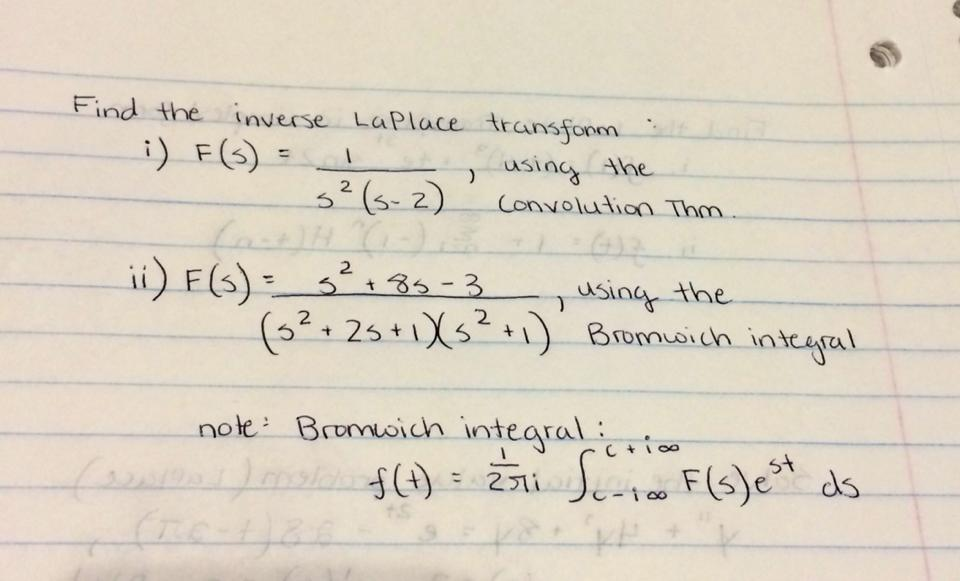 Find the inverse LaPlace transform :
i) F(s) = 1 / s²(s-2) , using the Convolution Thm.
ii) F(s) = s² + 8s - 3 / (s² + 2s + 1)(s² + 1) , using the Bromwich integral
note: Bromwich integral :
f(t) = 1/2πi ∫c-i∞ c+i∞ F(s)e^st ds